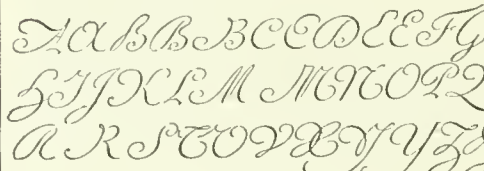 A A B B B C C D E E F G
H I J K L M M N O P Q
A R S T O V X Y Y Z